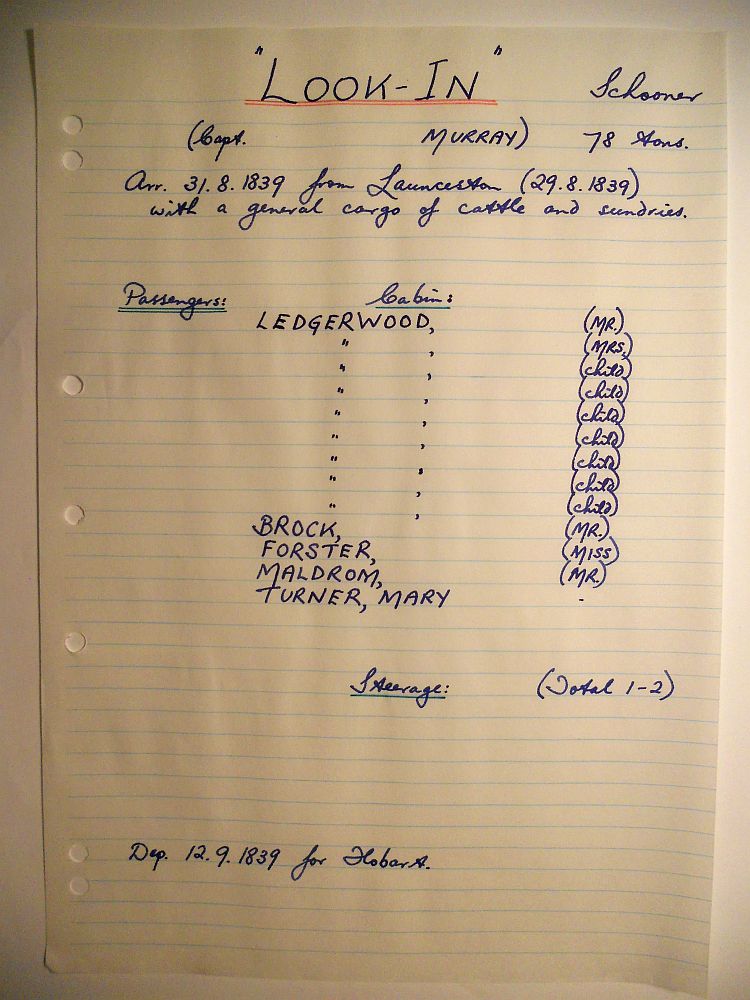 "LOOK-IN" Schooner
(Capt. MURRAY) 78 tons.
Arr. 31.8.1839 from Launceston (29.8.1839)
with a general cargo of cattle and sundries.
Passengers: Cabin:
LEDGERWOOD, (MR.)
" , (MRS.)
" , (child)
" , (child)
" , (child)
" , (child)
" , (child)
" , (child)
" , (child)
BROCK, (MR.)
FORSTER, (MISS)
MALDROM, (MR.)
TURNER, MARY -
Steerage: (Total 1-2)
Dep. 12.9.1839 for Hobart.